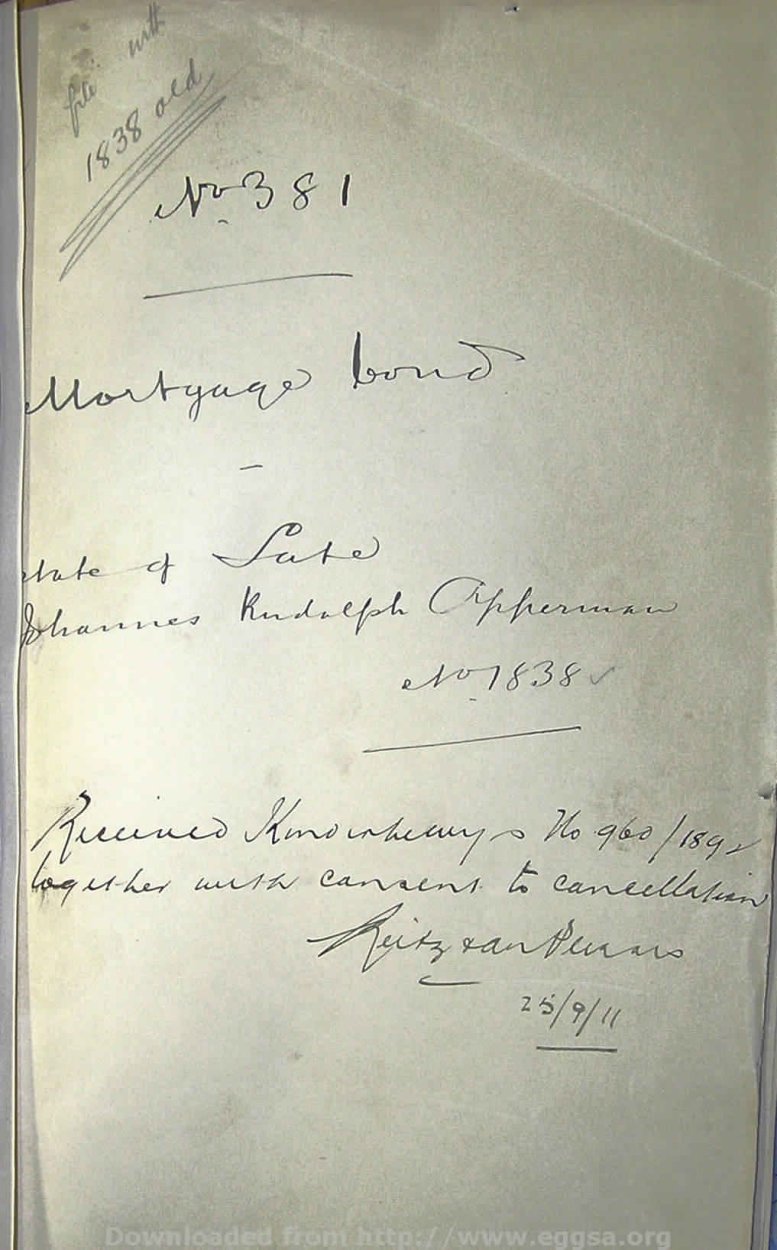 file with
1838 old
No 381
Mortgage bond
state of Late
Johannes Rudolph Opperman
No 1838 ✓
Received Kinderbewys No 960/1892
together with consent to cancellation
Reitz
25/9/11
Downloaded from http://www.eggsa.org